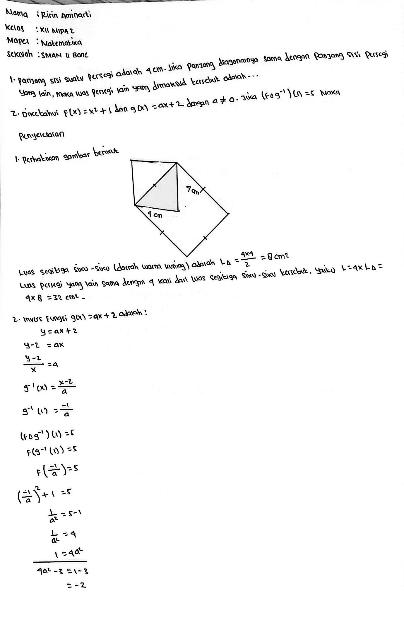 Nama : Ririn Aminarti
Kelas : XII MIPA 2
Mapel : Matematika
Sekolah : SMAN 11 Bone
1. Panjang sisi suatu persegi adalah 4 cm. Jika panjang diagonalnya sama dengan panjang sisi persegi
yang lain, maka luas persegi lain yang dimaksud tersebut adalah...
2. Diketahui F(x) = x² + 1 dan g(x) = ax + 2 dengan a ≠ 0. Jika (fog⁻¹)(1) = 5 Maka
Penyelesaian
1. Perhatikan gambar berikut
4 cm
Luas segitiga siku-siku (daerah warna kuning) adalah L∆ = 4x4/2 = 8 cm²
Luas persegi yang lain sama dengan 4 kali dari luas segitiga siku-siku tersebut, yaitu L = 4 x L∆ =
4 x 8 = 32 cm².
2. Invers Fungsi g(x) = ax + 2 adalah :
y = ax + 2
y-2 = ax
y-2/x = a
g⁻¹(x) = x-2/a
g⁻¹(1) = -1/a
(fog⁻¹)(1) = 5
F(g⁻¹(1)) = 5
F(-1/a) = 5
(-1/a)² + 1 = 5
1/a² = 5-1
1/a² = 4
1 = 4a²
4a² - 3 = 1 - 3
= -2